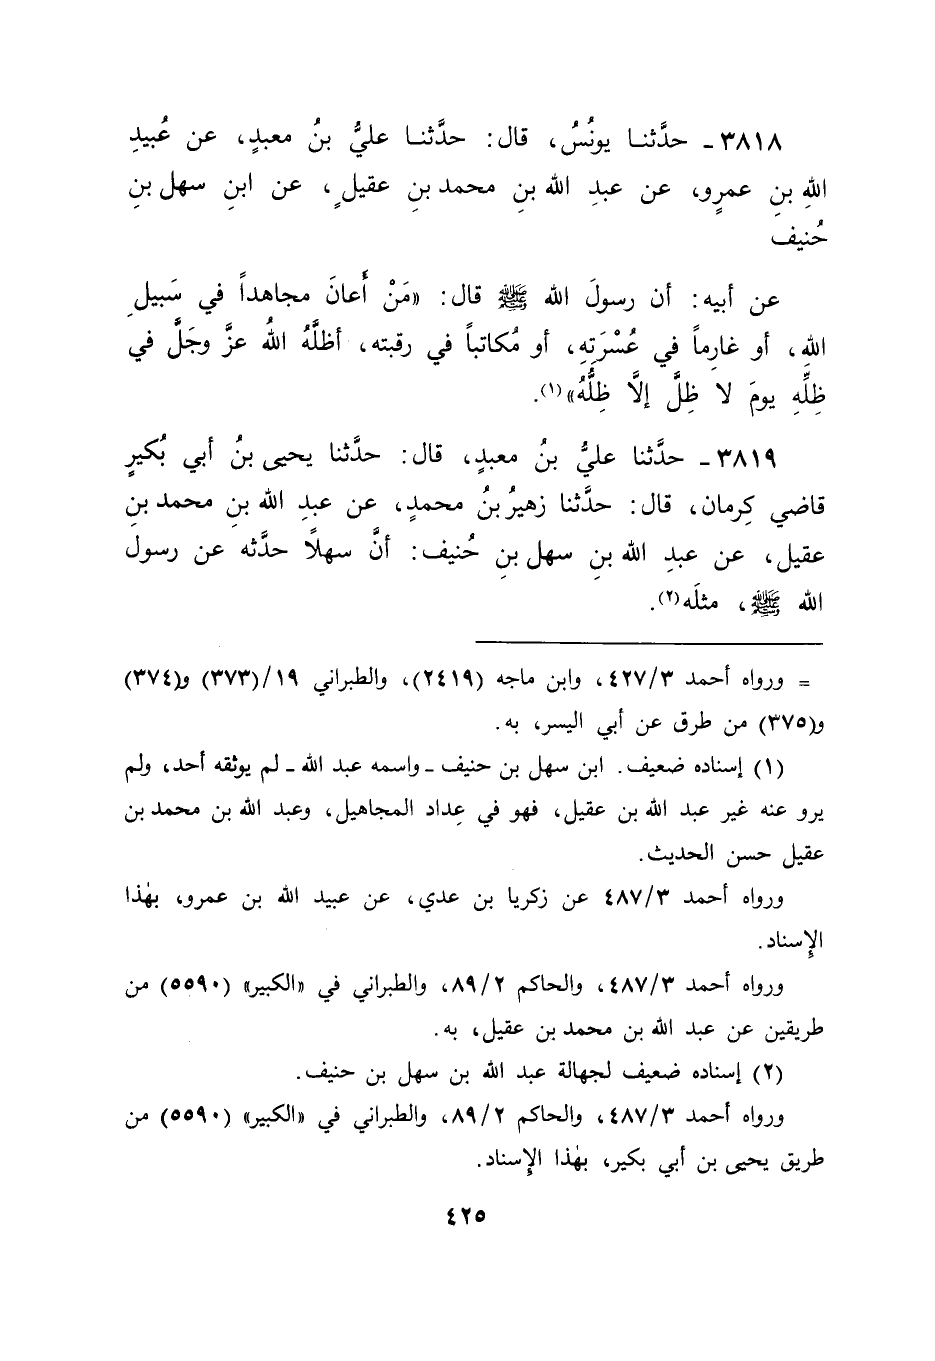 ٣٨١٨ ـ حدَّثنـا يونُسُ، قال: حدَّثنـا عليُّ بنُ معبدٍ، عن عُبيدِ
اللهِ بنِ عمرٍو، عن عبدِ اللهِ بنِ محمدِ بنِ عقيلٍ، عن ابنِ سهل بنِ
حُنيف
عن أبيه: أن رسولَ الله ﷺ قال: «مَنْ أَعانَ مجاهداً في سَبيلِ
اللهِ، أو غارِماً في عُسْرَتِهِ، أو مُكاتباً في رقبته، أظلَّهُ اللهُ عزَّ وجَلَّ في
ظِلِّهِ يومَ لا ظِلَّ إلَّا ظِلُّهُ»(١).
٣٨١٩ ـ حدَّثنا عليُّ بنُ معبدٍ، قال: حدَّثنا يحيى بنُ أبي بُكيرٍ
قاضي كِرمان، قال: حدَّثنا زهيرُ بنُ محمدٍ، عن عبدِ اللهِ بنِ محمد بنِ
عقيل، عن عبدِ الله بنِ سهل بنِ حُنيف: أنَّ سهلاً حدَّثه عن رسول
الله ﷺ، مثلَه(٢).
= ورواه أحمد ٤٢٧/٣، وابن ماجه (٢٤١٩)، والطبراني ١٩/(٣٧٣) و(٣٧٤)
و(٣٧٥) من طرق عن أبي اليسر، به.
(١) إسناده ضعيف. ابن سهل بن حنيف ـ واسمه عبد الله ـ لم يوثقه أحد، ولم
يرو عنه غير عبد الله بن عقيل، فهو في عِداد المجاهيل، وعبد الله بن محمد بن
عقيل حسن الحديث.
ورواه أحمد ٤٨٧/٣ عن زكريا بن عدي، عن عبيد الله بن عمرو، بهٰذا
الإِسناد.
ورواه أحمد ٤٨٧/٣، والحاكم ٨٩/٢، والطبراني في «الكبير» (٥٥٩٠) من
طريقين عن عبد الله بن محمد بن عقيل، به.
(٢) إسناده ضعيف لجهالة عبد الله بن سهل بن حنيف.
ورواه أحمد ٤٨٧/٣، والحاكم ٨٩/٢، والطبراني في «الكبير» (٥٥٩٠) من
طريق يحيى بن أبي بكير، بهٰذا الإِسناد.
٤٢٥